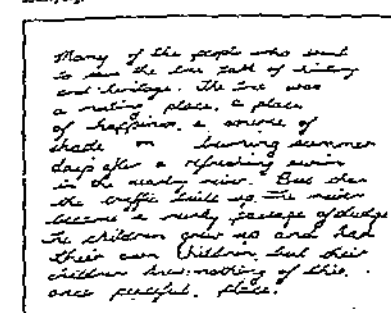 Many of the people who went
to see the tree talk of history
and heritage. The tree was
a meeting place, a place
of happiness, a source of
shade on burning summer
days after a refreshing swim
in the nearby river. But then
the traffic built up. The river
became a murky passage of sludge
The children grew up and had
their own children, but their
children knew nothing of this
once peaceful place.